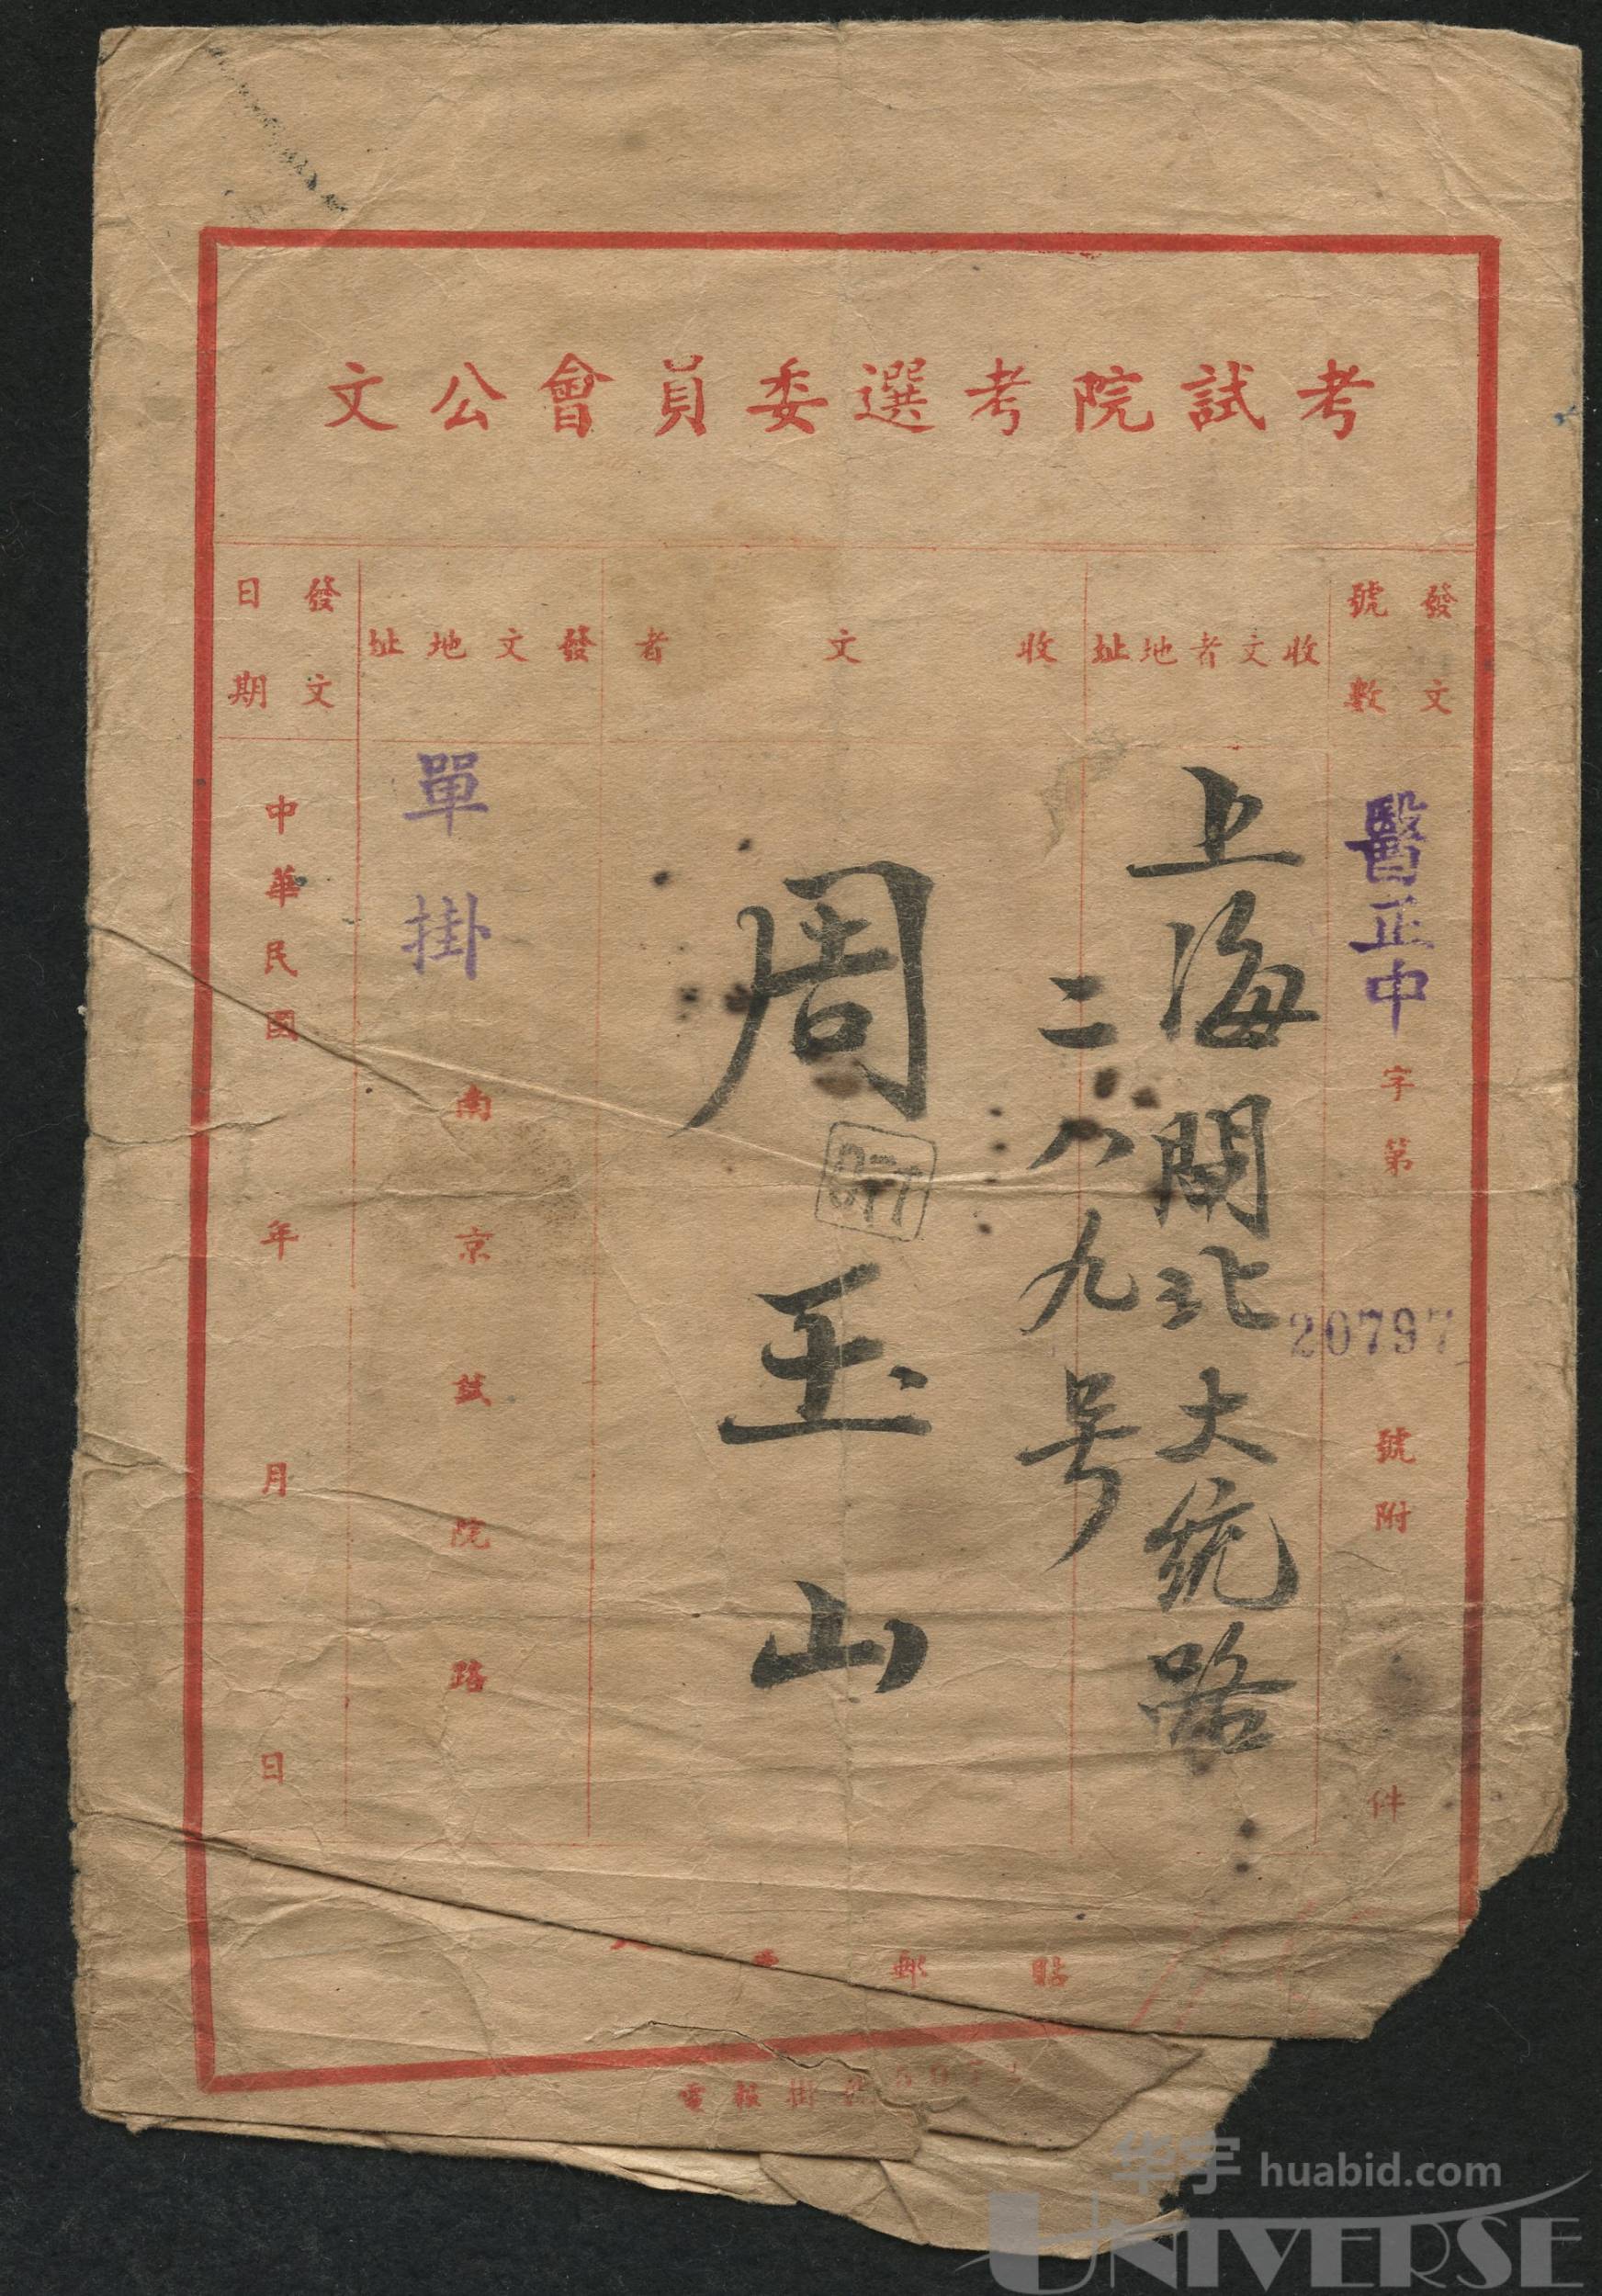 考試院考選委員會公文
發文號數
收文者地址
收文者
發文地址
發文日期
醫正中字第20797號附件
上海閘北大統路
二八九号
周玉山
077
單掛
南京試院路
中華民國年月日
貼郵
電報掛
华宇 huabid.com
UNIVERSE